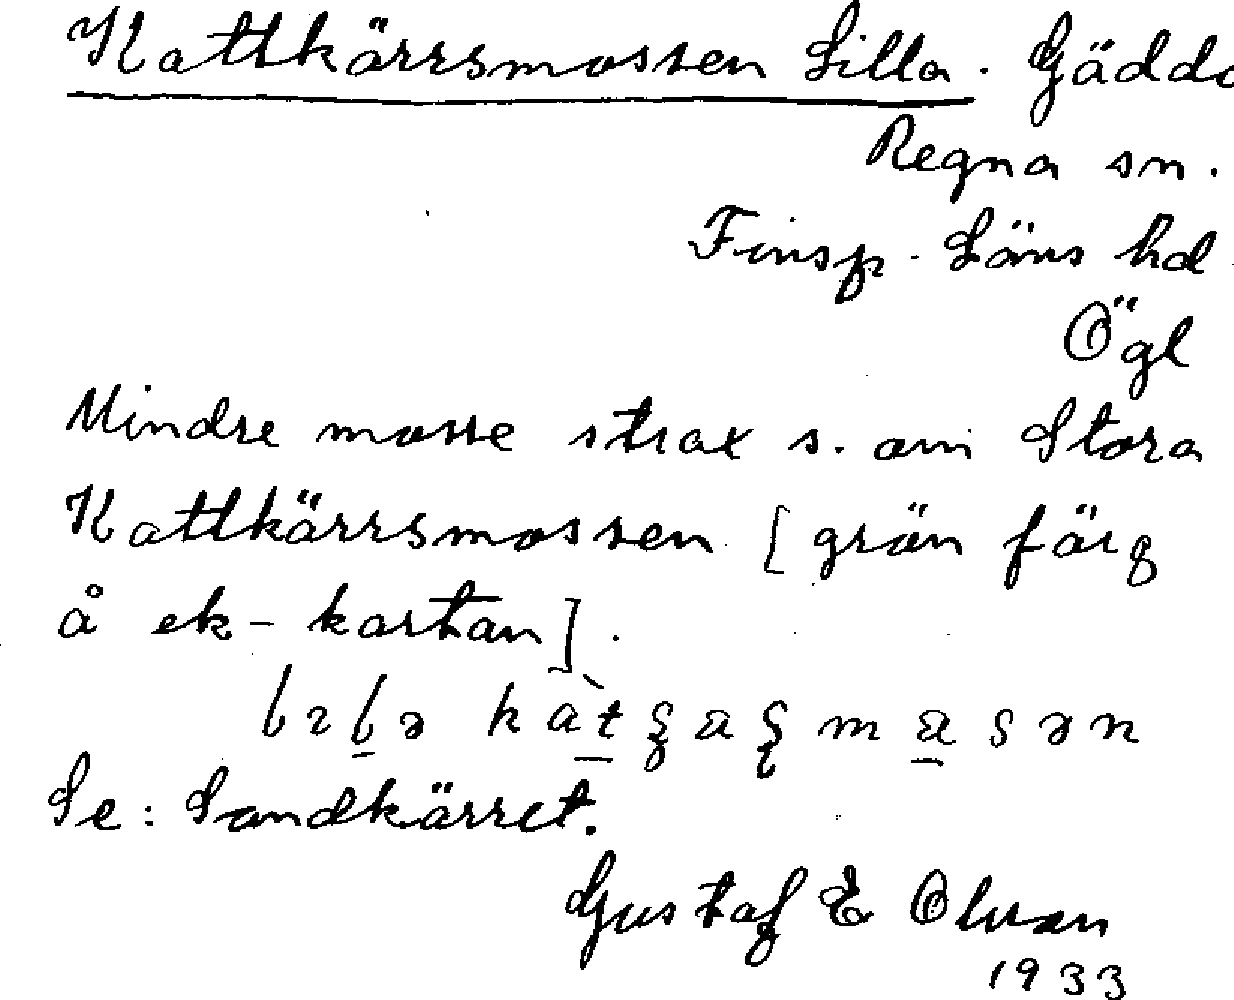 Kattkärrsmossen Lilla. Gädde
Regna sn.
Finsp. Läns hd
Ögl
Mindre mosse strax s. om Stora
Kattkärrsmossen [grön färg
å ek-kartan].
Se: Sandkärret.
Gustaf E Olsson
1933